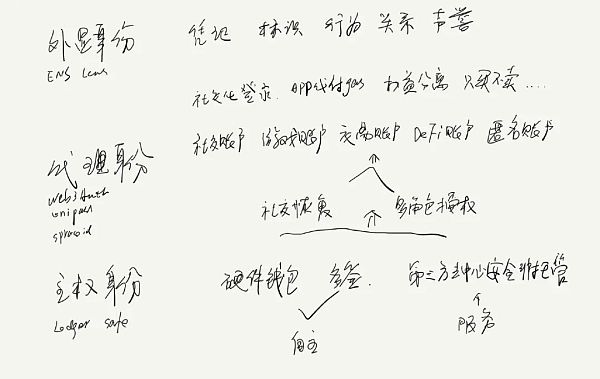 外显身份 凭证 标识 行为 关系 声誉
ENS Lens
社交化登录 APP代付gas 权益分离 只买不卖....
代理身份 社交账户 游戏账户 交易账户 DeFi账户 匿名账户
web3Auth
unipass
spruceid
社交恢复 多角色授权
主权身份 硬件钱包 多签. 第三方去中心安全托管
Ledger safe
自主 服务